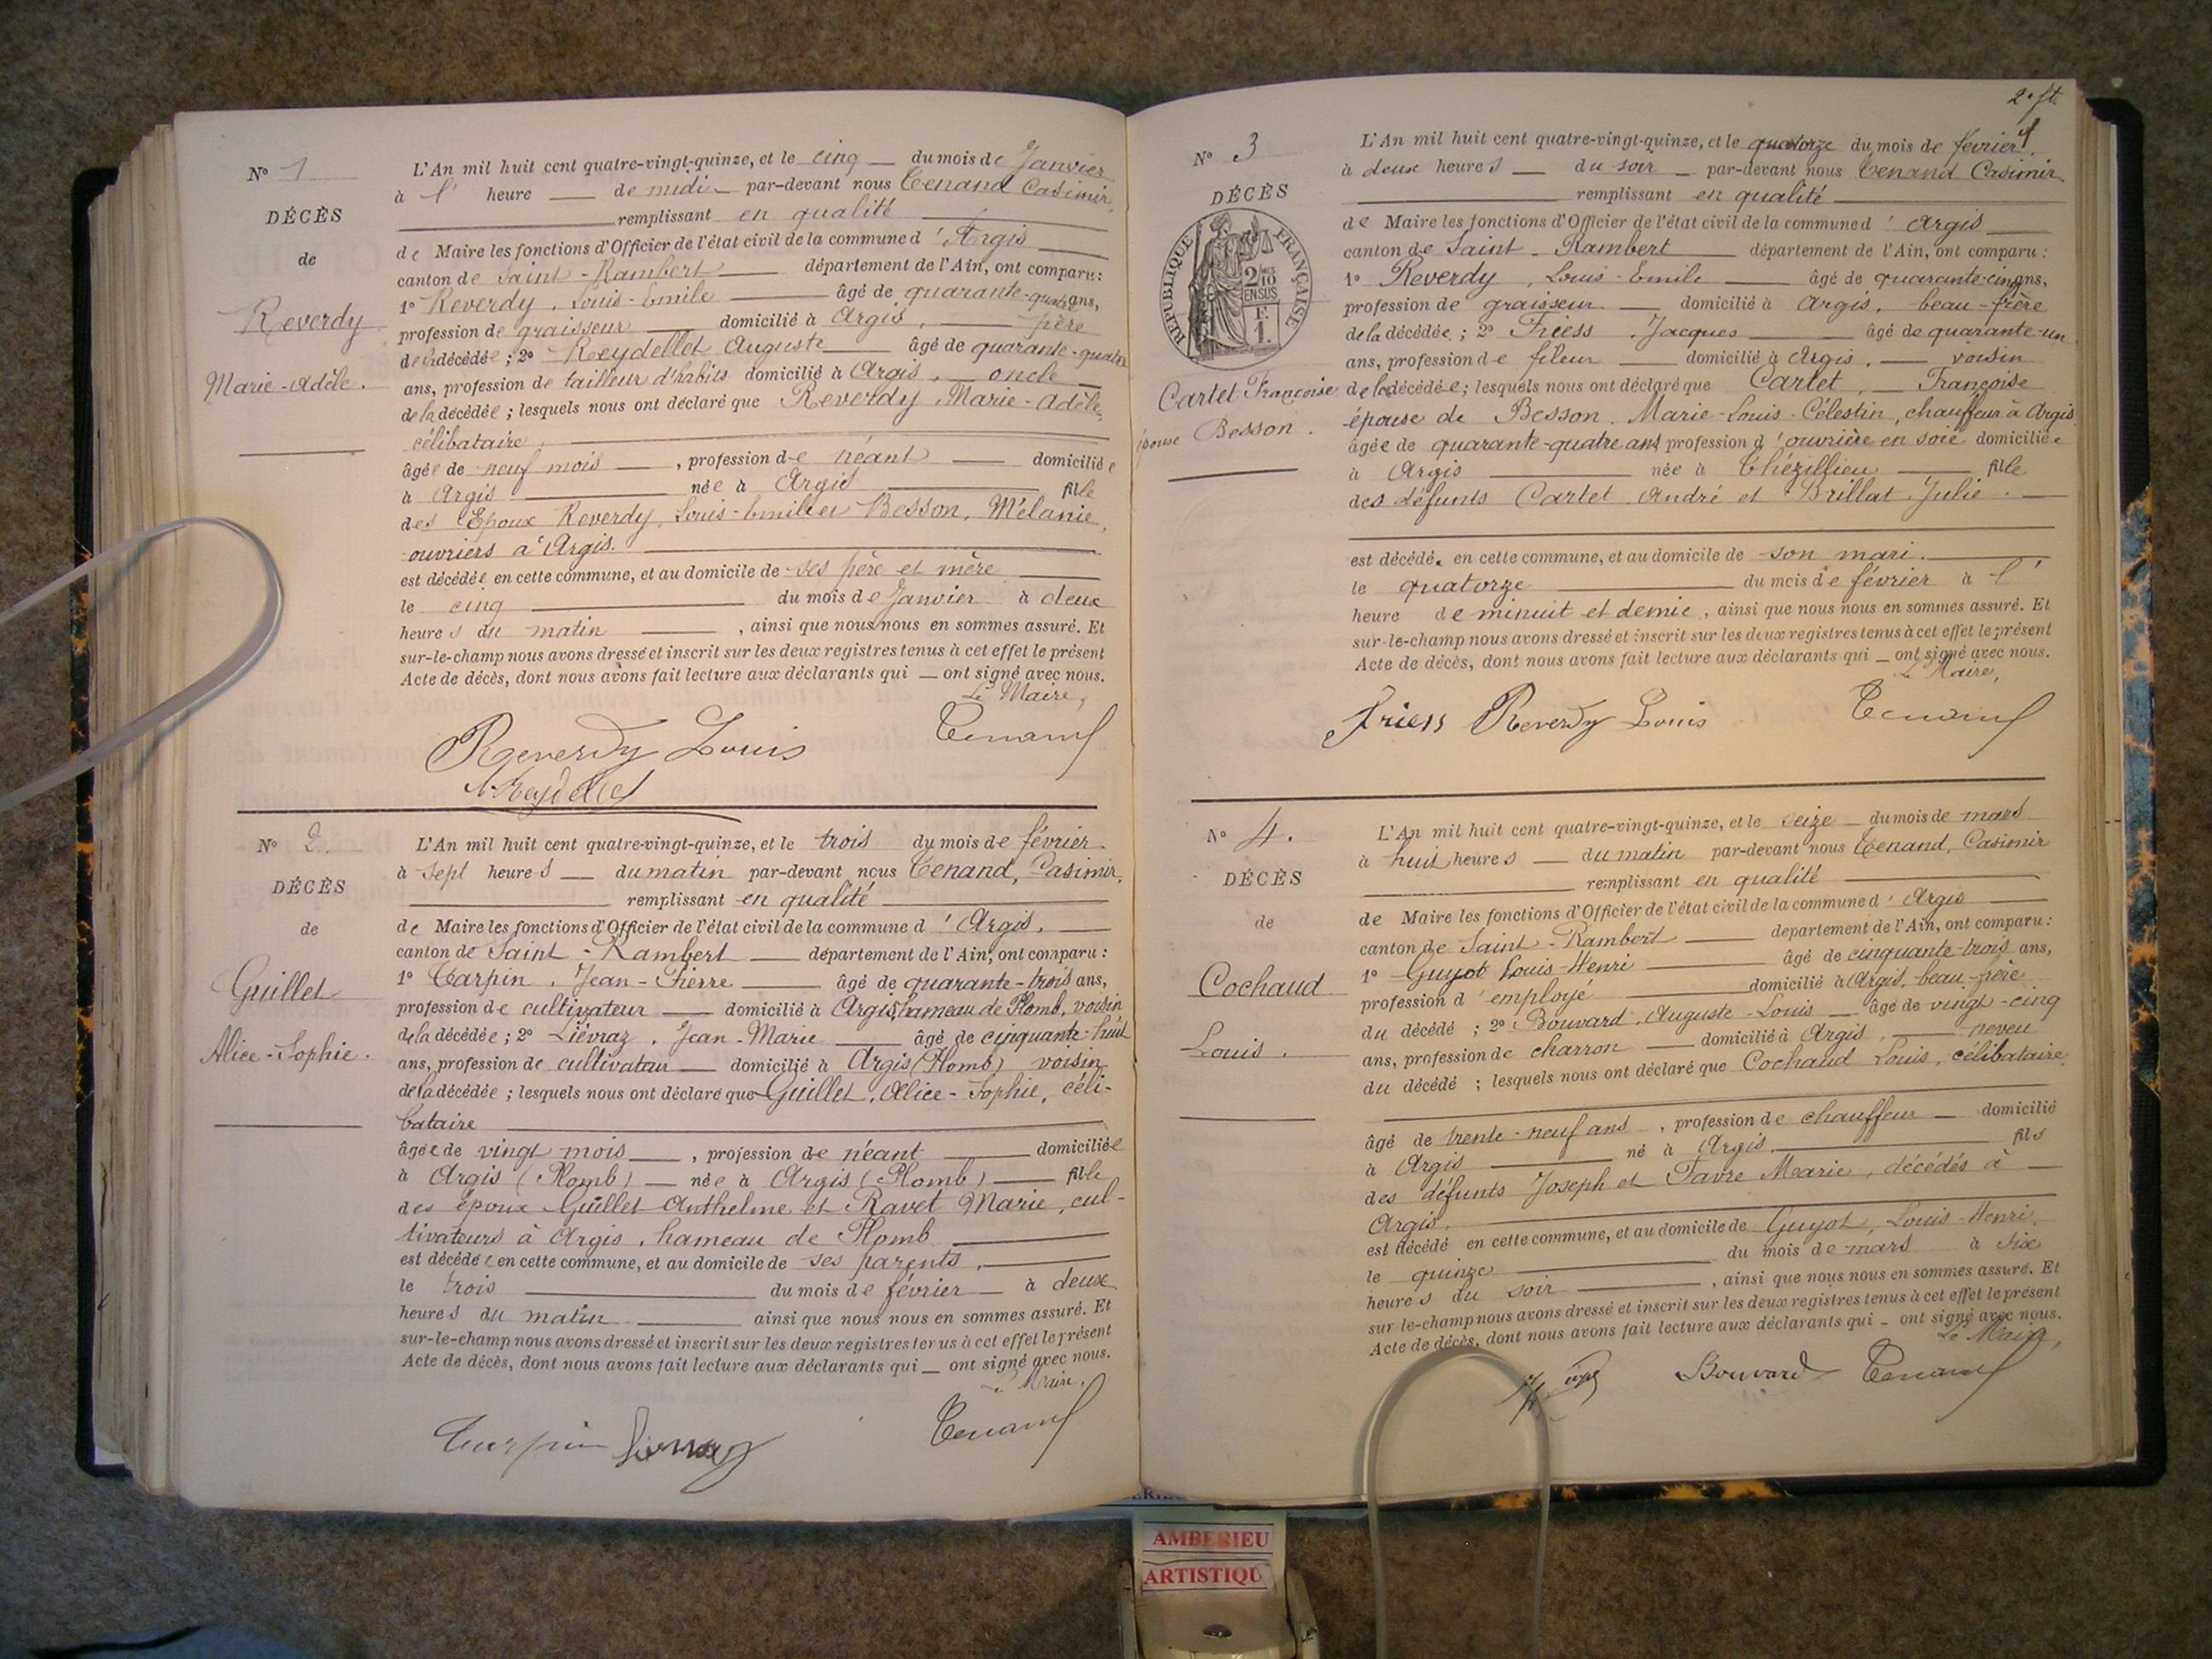 N° 1
DÉCÈS
de
Reverdy
Marie-Adèle.
L'An mil huit cent quatre-vingt-quinze, et le cinq du mois de Janvier
à l' heure de midi par-devant nous Tenand Casimir
remplissant en qualité
de Maire les fonctions d'Officier de l'état civil de la commune d'Argis
canton de Saint-Rambert département de l'Ain, ont comparu:
1° Reverdy, Louis-Emile âgé de quarante-quatre ans,
profession de graisseur domicilié à Argis, père
de la décédée; 2° Reydellet Auguste âgé de quarante-quatre
ans, profession de tailleur d'habits domicilié à Argis, oncle
de la décédée; lesquels nous ont déclaré que Reverdy, Marie-Adèle,
célibataire,
âgée de neuf mois, profession de néant domiciliée
à Argis née à Argis fille
des Epoux Reverdy, Louis-Emile et Besson, Mélanie,
ouvriers à Argis.
est décédée en cette commune, et au domicile de ses père et mère
le cinq du mois de Janvier à deux
heures du matin, ainsi que nous nous en sommes assuré. Et
sur-le-champ nous avons dressé et inscrit sur les deux registres tenus à cet effet le présent
Acte de décès, dont nous avons fait lecture aux déclarants qui — ont signé avec nous.
Le Maire,
Reverdy Louis Tenand
A. Reydellet
N° 2.
DÉCÈS
de
Guillet
Alice-Sophie.
L'An mil huit cent quatre-vingt-quinze, et le trois du mois de février.
à sept heures du matin par-devant nous Tenand, Casimir,
remplissant en qualité
de Maire les fonctions d'Officier de l'état civil de la commune d'Argis,
canton de Saint-Rambert département de l'Ain, ont comparu:
1° Carpin, Jean-Pierre âgé de quarante-trois ans,
profession de cultivateur domicilié à Argis, hameau de Plomb, voisin
de la décédée; 2° Liévraz, Jean-Marie âgé de cinquante-huit
ans, profession de cultivateur domicilié à Argis (Plomb) voisin
de la décédée; lesquels nous ont déclaré que Guillet, Alice-Sophie, céli-
bataire
âgée de vingt mois, profession de néant domiciliée
à Argis (Plomb) née à Argis (Plomb) fille
des époux Guillet Anthelme et Ravet Marie, cul-
tivateurs à Argis, hameau de Plomb
est décédée en cette commune, et au domicile de ses parents,
le trois du mois de février à deux
heures du matin ainsi que nous nous en sommes assuré. Et
sur-le-champ nous avons dressé et inscrit sur les deux registres tenus à cet effet le présent
Acte de décès, dont nous avons fait lecture aux déclarants qui — ont signé avec nous.
Le Maire,
Tenand
2e ft.
N° 3
DÉCÈS
RÉPUBLIQUE FRANÇAISE
2/10 EN SUS
F. 1.
Cartet Françoise
épouse Besson.
L'An mil huit cent quatre-vingt-quinze, et le quatorze du mois de février.
à deux heures du soir par-devant nous Tenand Casimir
remplissant en qualité
de Maire les fonctions d'Officier de l'état civil de la commune d'Argis
canton de Saint-Rambert département de l'Ain, ont comparu:
1° Reverdy, Louis-Emile âgé de quarante-cinq ans,
profession de graisseur. domicilié à Argis, beau-frère
de la décédée; 2° Friess, Jacques âgé de quarante-un
ans, profession de fileur domicilié à Argis, voisin
de la décédée; lesquels nous ont déclaré que Cartet, Françoise
épouse de Besson, Marie-Louis-Célestin, chauffeur à Argis
âgée de quarante-quatre ans, profession d'ouvrière en soie domiciliée
à Argis née à Thézillieu fille
des défunts Cartet André et Brillat Julie.
est décédée en cette commune, et au domicile de son mari.
le quatorze du mois de février à l'
heure de minuit et demie, ainsi que nous nous en sommes assuré. Et
sur-le-champ nous avons dressé et inscrit sur les deux registres tenus à cet effet le présent
Acte de décès, dont nous avons fait lecture aux déclarants qui — ont signé avec nous.
Le Maire,
Friess Reverdy Louis Tenand
N° 4.
DÉCÈS
de
Cochaud
Louis.
L'An mil huit cent quatre-vingt-quinze, et le seize du mois de mars
à huit heures du matin par-devant nous Tenand, Casimir
remplissant en qualité
de Maire les fonctions d'Officier de l'état civil de la commune d'Argis
canton de Saint-Rambert département de l'Ain, ont comparu:
1° Guyot Louis-Henri âgé de cinquante-trois ans,
profession d'employé domicilié à Argis, beau-frère
du décédé; 2° Bouvard, Auguste-Louis âgé de vingt-cinq
ans, profession de charron domicilié à Argis, neveu
du décédé; lesquels nous ont déclaré que Cochaud Louis, célibataire,
âgé de trente-neuf ans, profession de chauffeur domicilié
à Argis né à Argis, fils
des défunts Joseph et Favre Marie, décédés à
Argis.
est décédé en cette commune, et au domicile de Guyot, Louis-Henri,
le quinze du mois de mars à six
heures du soir, ainsi que nous nous en sommes assuré. Et
sur-le-champ nous avons dressé et inscrit sur les deux registres tenus à cet effet le présent
Acte de décès, dont nous avons fait lecture aux déclarants qui — ont signé avec nous.
Le Maire,
Bouvard Tenand
AMBERIEU
ARTISTIQU